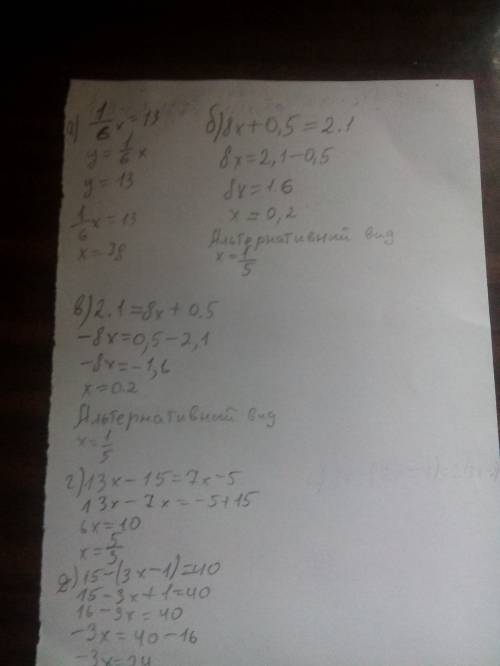 а) 1/6 x = 13
y = 1/6 x
y = 13
1/6 x = 13
x = 78
б) 8x + 0,5 = 2.1
8x = 2,1 - 0,5
8x = 1.6
x = 0,2
Альтернативний вид
x = 1/5
в) 2.1 = 8x + 0.5
-8x = 0,5 - 2,1
-8x = -1,6
x = 0.2
Альтернативний вид
x = 1/5
г) 13x - 15 = 7x - 5
13x - 7x = -5 + 15
6x = 10
x = 5/3
д) 15 - (3x - 1) = 40
15 - 3x + 1 = 40
16 - 3x = 40
-3x = 40 - 16
-3x = 24